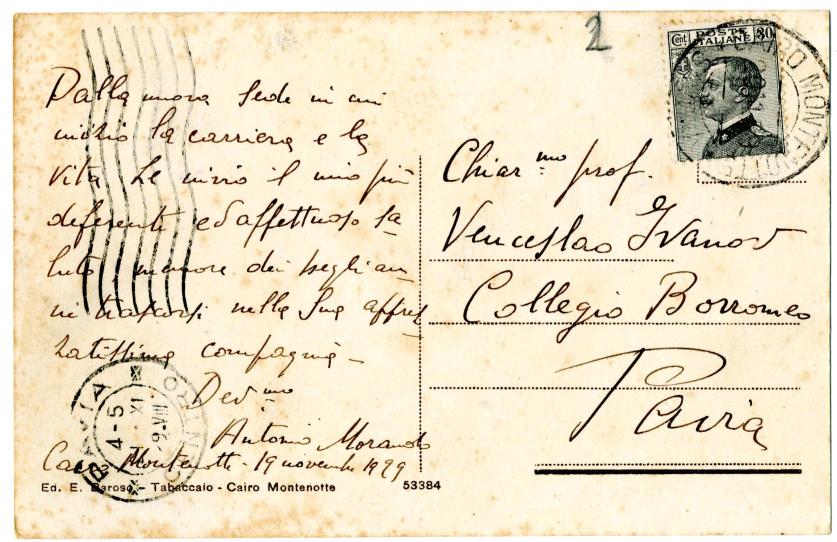 2
Cent POSTE ITALIANE 30
CAIRO MONTENOTTE
Dalla nuova sede in cui
inizio la carriera e la
vita Le invio il mio più
deferente ed affettuoso sa-
luto memore dei begli an-
ni trascorsi nella Sua apprez
zatissima compagnia -
Dev.mo
Antonio
Cairo Montenotte - 19 novembre 1929
Chiar.mo prof.
Venceslao Ivanov
Collegio Borromeo
Pavia
PAVIA CENTRO
4-5
XI
Ed. E. Baroso - Tabaccaio - Cairo Montenotte
53384